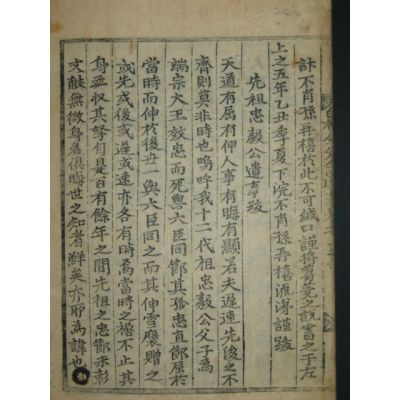 計不肖孫再禧於此不可緘口謹將蒭蕘之說書之于左
上之五年乙丑季夏下浣不肖孫再禧流涕謹跋
先祖忠毅公遺事跋
天道有屈有伸人事有晦有顯若夫遲速先後之不
齊則莫非時也嗚呼我十二代祖忠毅公父子爲
端宗大王放忠而死與大臣同節其孤忠直節屈於
當時而伸於後世一與大臣同之而其伸雪褒贈之
或先或後或遲或速亦各有時焉當時之禍不止其
身並收其孥有是百有餘年之間先祖之忠節未彰
文献無徵身名俱晦世之知者鮮矣亦耶爲諱也